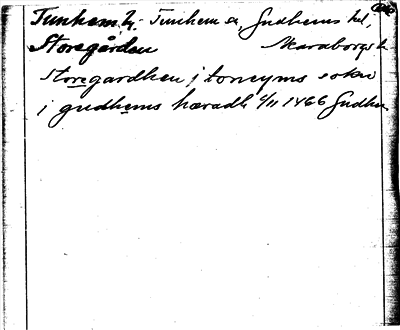 Tunhem, Tunhem sn, Gudhems hd,
Storegården Skaraborgs l.
Storegardhen i toneyms sokn
i gudhems hæradh 4/11 1466 Gudhem